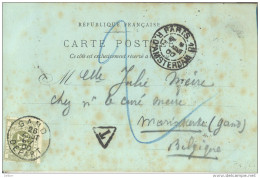 RÉPUBLIQUE FRANÇAISE
CARTE POSTALE
Ce côté est exclusivement réservé à l'adresse
R. PARIS AU
AMSTERDAM
M elle Julie Meire
chez M le curé Meire
Mariakerke (Gand)
Belgique
GAND
T